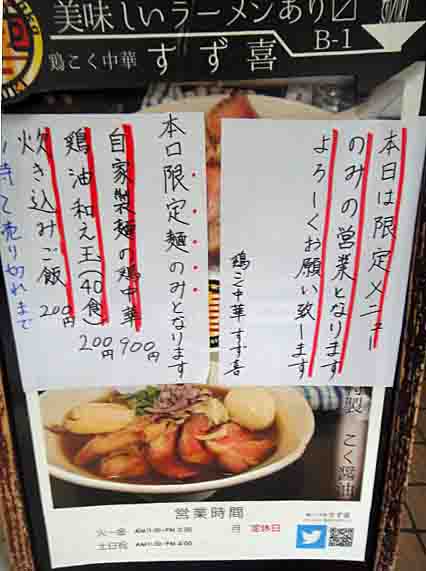 美味しいラーメンあり〼
B-1
鶏こく中華 すず喜
本日は限定メニュー
のみの営業となります
よろしくお願い致します
鶏こく中華 すず喜
本日限定麺のみとなります
自家製麺の鶏中華
900円
鶏油和え玉(40食)
200円
炊き込みご飯
200円
売り切れまで
こく醤油
営業時間
火ー金
月 定休日
土日祝